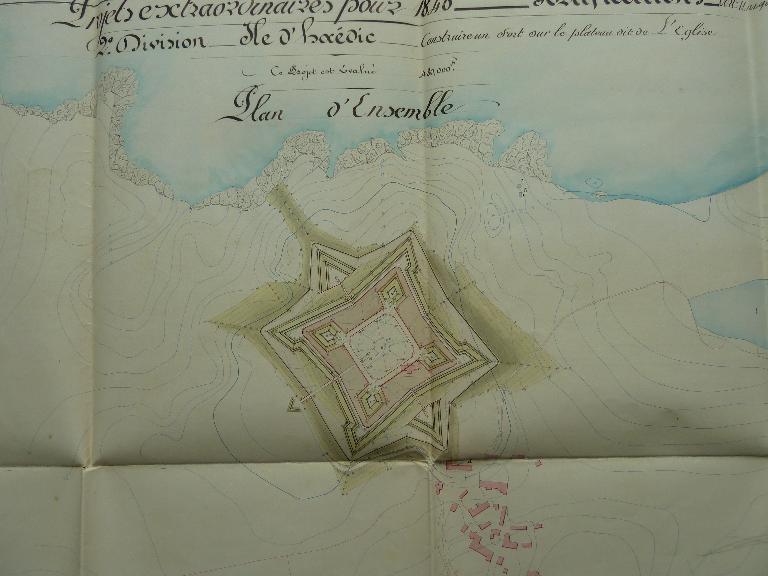 Projets extraordinaires pour 1840 Fortifications
2e Division Ile d'hoëdic Construire un Fort sur le plateau dit de L'Eglise.
Ce Projet est évalué 480,000f
Plan d'Ensemble